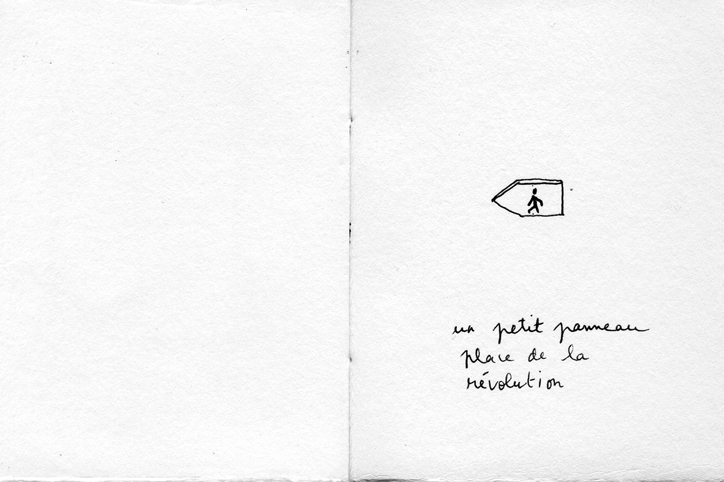 un petit panneau
place de la
révolution